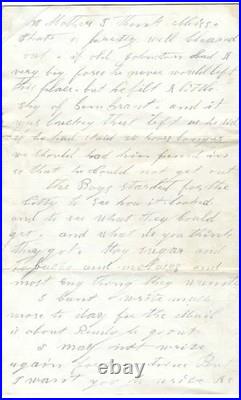 So Mother I think Missr
thats a pretty well cleaned
out. if old Johnston had a
very big force he never would left
this place. but he felt a little
shy of burn and it
was lucky that left as he did
if he had staid 24 hours longer
we should had him penned in
so that he could not got out
the Boys started for the
Citty to see how it looked
and to see what they could
get. and what do you think
they got. they sugar and
tobacko and molases and
most any thing they wanted
I cant write much
more to day for the Mail
is about Ready to go out
I may not write
again for time But
I want you to write as
ebay